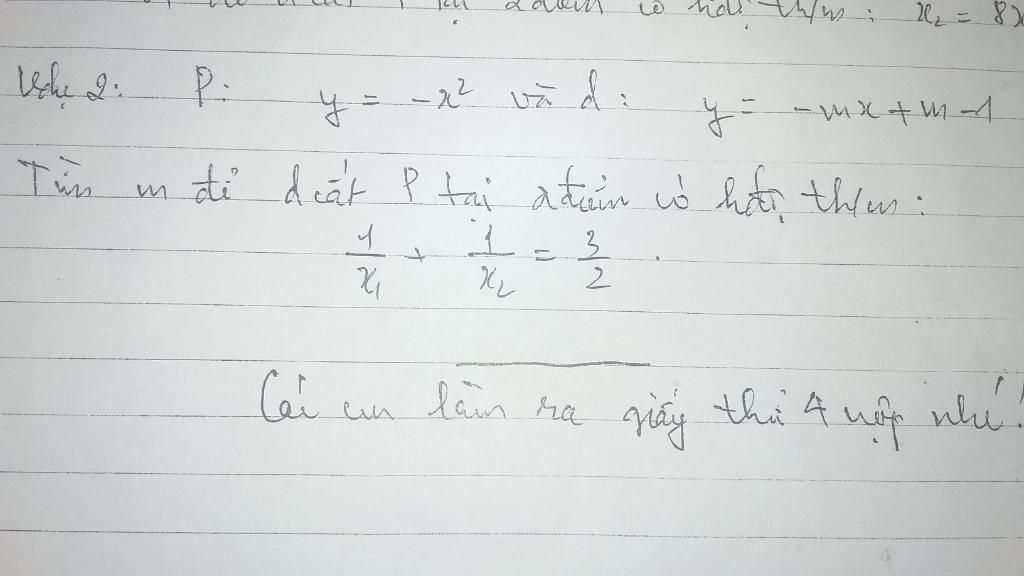 tại 2 điểm có hđộ th/m : x₂ = 8x
P: y = -x² và d : y = -mx + m - 1
Tìm m để d cắt P tại 2 điểm có hđộ th/m :
1/x₁ + 1/x₂ = 3/2 .
Các em làm ra giấy thứ 4 nộp nhé !